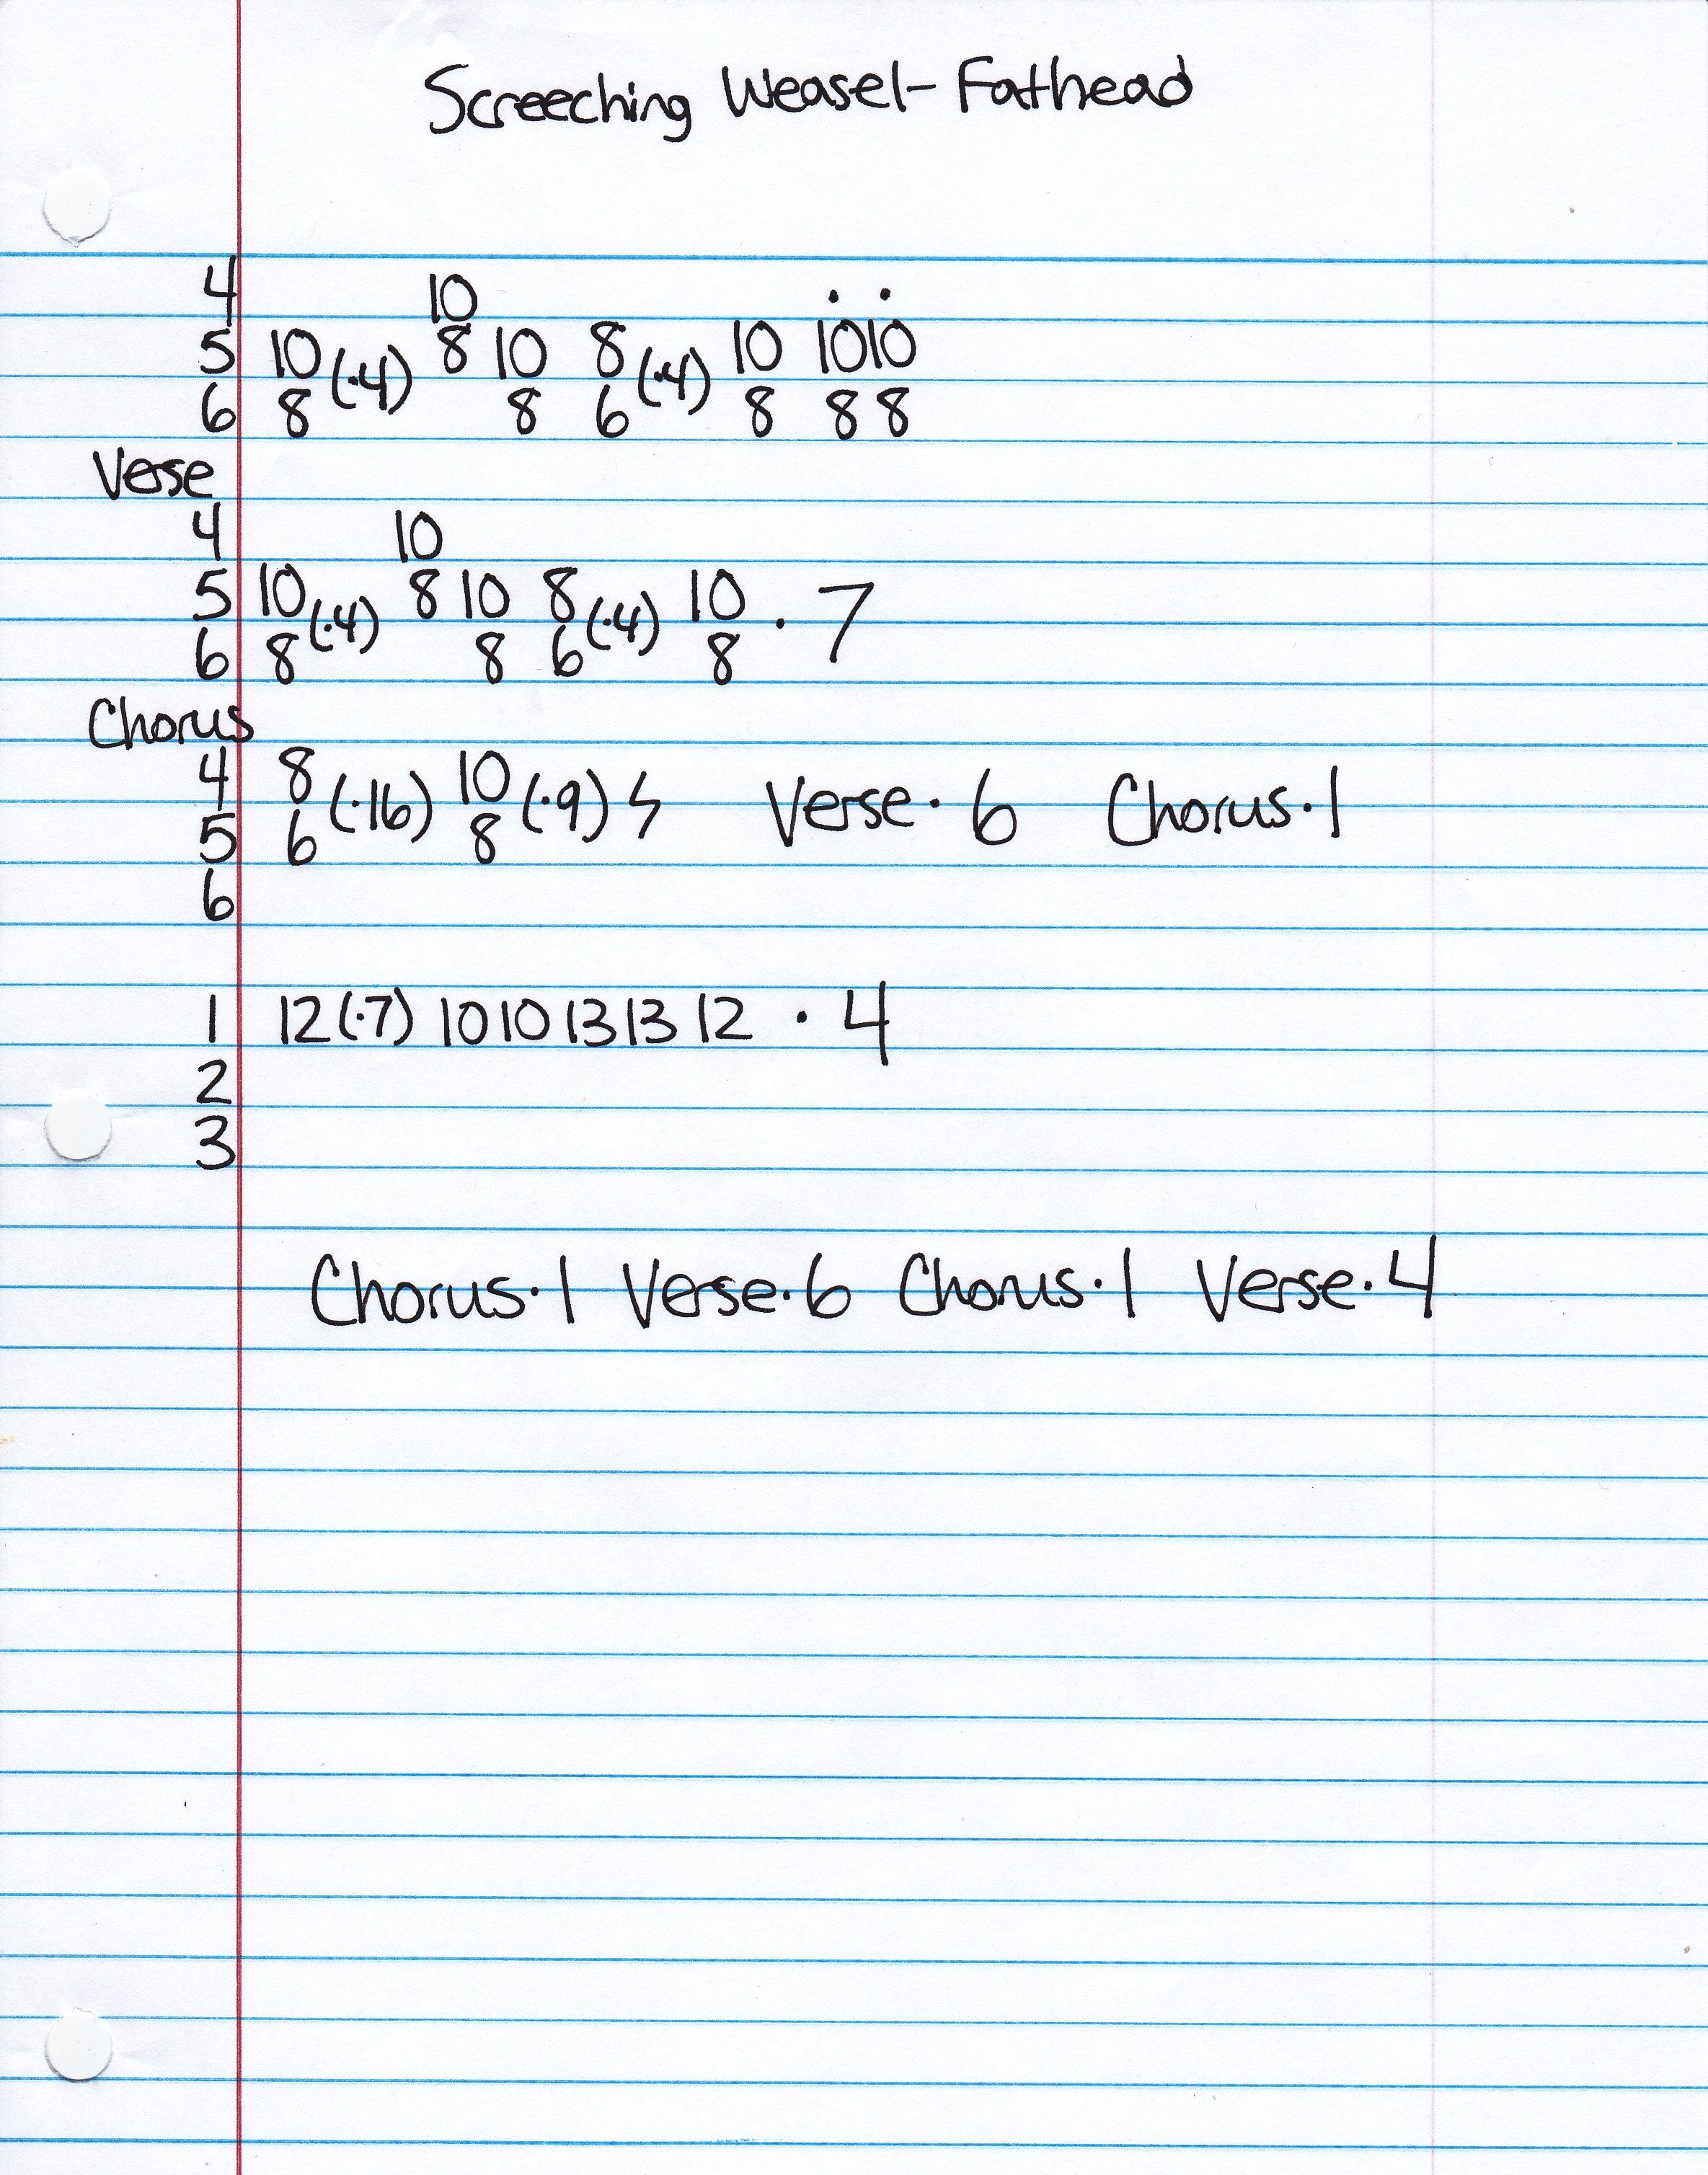 Screeching Weasel - Fathead
4 10 . .
5 10 (·4) 8 10 8 (·4) 10 10 10
6 8 8 6 8 8 8
Verse
4 10
5 10 (·4) 8 10 8 (·4) 10 · 7
6 8 8 6 8
Chorus
4 8 (·16) 10 (·9) ϟ Verse · 6 Chorus · 1
5 6 8
6
1 12 (·7) 10 10 13 13 12 · 4
2
3
Chorus · 1 Verse · 6 Chorus · 1 Verse · 4